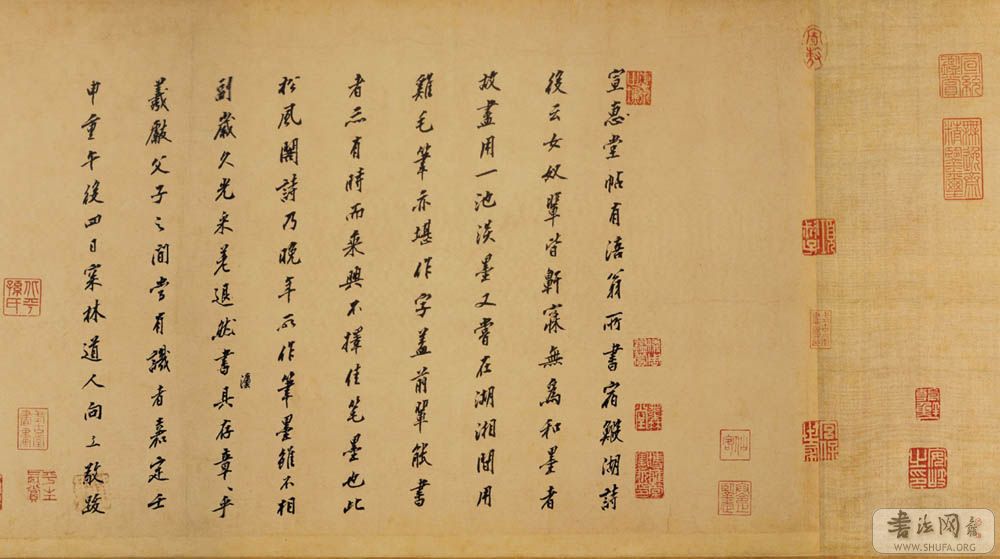 宣惠堂帖有涪翁所書宿鰒湖詩
後云女奴輩皆鼾寐無為和墨者
故盡用一池淡墨又嘗在湖湘間用
雞毛筆亦堪作字盖前輩能書
者亦有時而乘興不擇佳笔墨也此
松風閣詩乃晚年所作筆墨雖不相
副歲久光采差退然書灋具存章〻乎
羲獻父子之間當有識者嘉定壬
申重午後四日寀林道人向水敬跋
宣統鑑賞
無逸齋精鑒璽
安岐之印
書法网
WWW.SHUFA.ORG